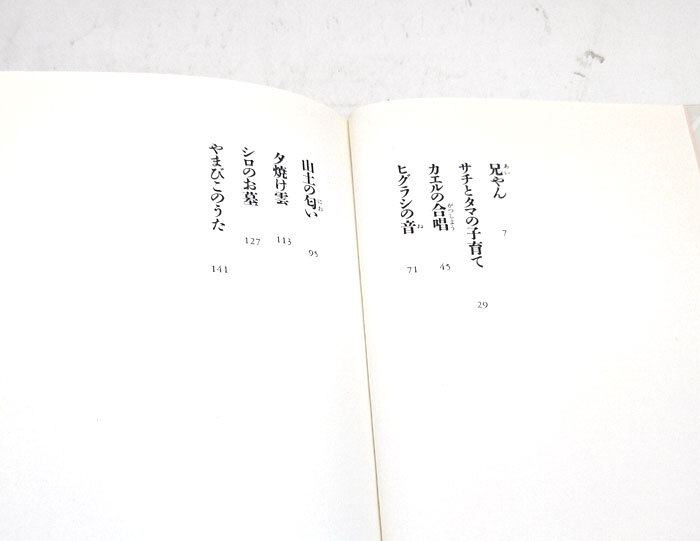 兄やん 7
サチとタマの子育て 29
カエルの合唱 45
ヒグラシの音 71
山土の匂い 95
夕焼け雲 113
シロのお墓 127
やまびこのうた 141